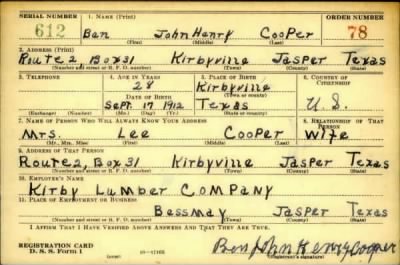 SERIAL NUMBER 1. NAME (Print) ORDER NUMBER
612 Ben John Henry Cooper 78
(First) (Middle) (Last)
2. ADDRESS (Print)
Route 2, Box 31 Kirbyville Jasper Texas
(Number and street or R. F. D. number) (Town) (County) (State)
3. TELEPHONE 4. AGE IN YEARS 5. PLACE OF BIRTH 6. COUNTRY OF CITIZENSHIP
28 Kirbyville
DATE OF BIRTH (Town or county)
Sept. 17 1912 Texas U.S.
(Exchange) (Number) (Mo.) (Day) (Yr.) (State or country)
7. NAME OF PERSON WHO WILL ALWAYS KNOW YOUR ADDRESS 8. RELATIONSHIP OF THAT PERSON
Mrs. Lee Cooper Wife
(Mr., Mrs., Miss) (First) (Middle) (Last)
9. ADDRESS OF THAT PERSON
Route 2, Box 31 Kirbyville Jasper Texas
(Number and street or R. F. D. number) (Town) (County) (State)
10. EMPLOYER'S NAME
Kirby Lumber Company
11. PLACE OF EMPLOYMENT OR BUSINESS
Bessmay Jasper Texas
(Number and street or R. F. D. number) (Town) (County) (State)
I AFFIRM THAT I HAVE VERIFIED ABOVE ANSWERS AND THAT THEY ARE TRUE.
REGISTRATION CARD
D. S. S. Form 1 Ben John Henry Cooper